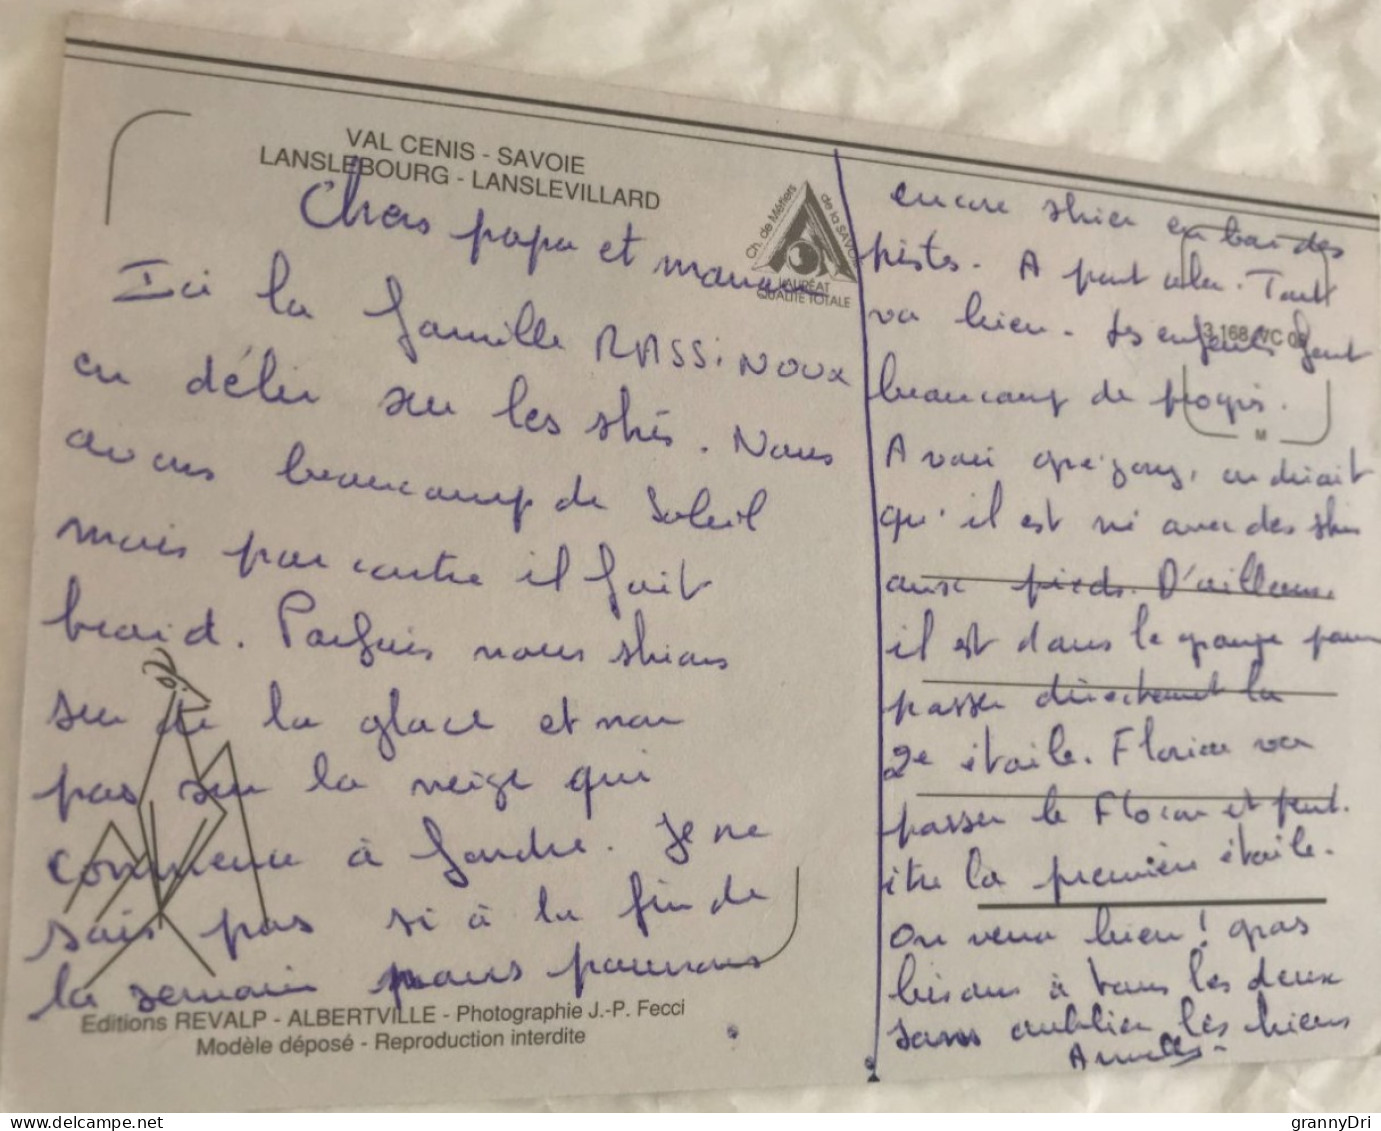 VAL CENIS - SAVOIE
LANSLEBOURG - LANSLEVILLARD
Ch. de Métiers de la SAVOIE
LAURÉAT
QUALITÉ TOTALE
Chers papa et maman
Ici la famille RASSINOUX
en délire sur les skis. Nous
avons beaucoup de soleil
mais par contre il fait
froid. Parfois nous skions
sur de la glace et non
pas sur la neige qui
commence à fondre. Je ne
sais pas si à la fin de
la semaine nous pourrons
Editions REVALP - ALBERTVILLE - Photographie J.-P. Fecci
Modèle déposé - Reproduction interdite
encore skier en bas des
pistes. A part cela. Tout
va bien. Les enfants font
3.168 VC
beaucoup de progrès.
M
A voir, on dirait
qu'il est né avec des skis
aux pieds. D'ailleurs
il est dans le groupe pour
passer directement la
2e étoile. Florian va
passer le Flocon et peut.
être la première étoile.
On verra bien! gros
bisous à tous les deux
sans oublier les biens
grannyDri